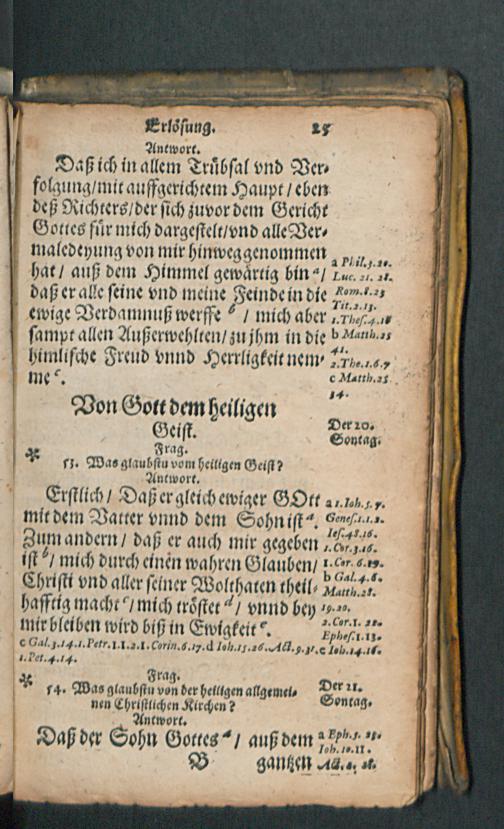 Erlösung. 25
Antwort.
Daß ich in allem Trübsal vnd Ver-
folgung/mit auffgerichtem Haupt/ eben
deß Richters/der sich zuvor dem Gericht
Gottes für mich dargestelt/vnd alle Ver-
maledeyung von mir hinweggenommen
hat/ auß dem Himmel gewärtig bin a/
daß er alle seine vnd meine Feinde in die
ewige Verdamnuß werffe b / mich aber
sampt allen Außerwehlten/ zu jhm in die
himlische Freud vnnd Herrligkeit nem-
me c.
a Phil.3.20.
Luc. 21. 28.
Rom.8.23
Tit.2.13.
1.Thes.4.16
b Matth.25
41.
2.The.1.6.7
c Matth.25
34.
Von Gott dem heiligen
Geist.
Der 20.
Sontag.
Frag.
* 53. Was glaubstu vom heiligen Geist?
Antwort.
Erstlich/ Daß er gleich ewiger GOtt
mit dem Vatter vnnd dem Sohn ist a.
Zum andern/ daß er auch mir gegeben
ist b/ mich durch einen wahren Glauben/
Christi vnd aller seiner Wolthaten theil-
hafftig macht c/ mich tröstet d/ vnnd bey
mir bleiben wird biß in Ewigkeit e.
a 1.Ioh.5.7.
Genes.1.1.2.
Ies.48.16.
1.Cor.3.16.
1.Cor.6.19.
b Gal.4.6.
Matth.28.
19.20.
2.Cor.1.22.
Ephes.1.13.
c Gal.3.14.1.Petr.1.2.1.Corin.6.17.d Ioh.15.26.Act.9.31.e Ioh.14.16.
1.Pet.4.14.
Frag.
* 54. Was glaubstu von der heiligen allgemei-
nen Christlichen Kirchen?
Der 21.
Sontag.
Antwort.
Daß der Sohn Gottes a/ auß dem
a Eph.5.
Ioh.10.11.
B gantzen
Act.